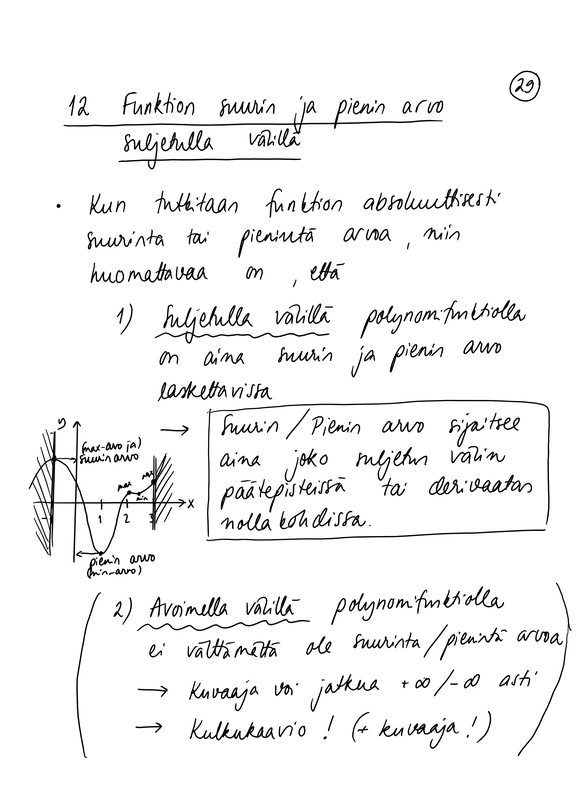 29
12 Funktion suurin ja pienin arvo
suljetulla välillä
• Kun tutkitaan funktion absoluuttisesti
suurinta tai pienintä arvoa, niin
huomattavaa on, että
1) Suljetulla välillä polynomifunktiolla
on aina suurin ja pienin arvo
laskettavissa
→ Suurin / Pienin arvo sijaitsee
aina joko suljetun välin
päätepisteissä tai derivaatan
nollakohdissa.
y
(max-arvo ja)
suurin arvo
max
max
min
x
-1 1 2 3
pienin arvo
(min-arvo)
2) Avoimella välillä polynomifunktiolla
ei välttämättä ole suurinta/pienintä arvoa
→ Kuvaaja voi jatkua +∞/-∞ asti
→ Kulkukaavio ! (+ kuvaaja !)